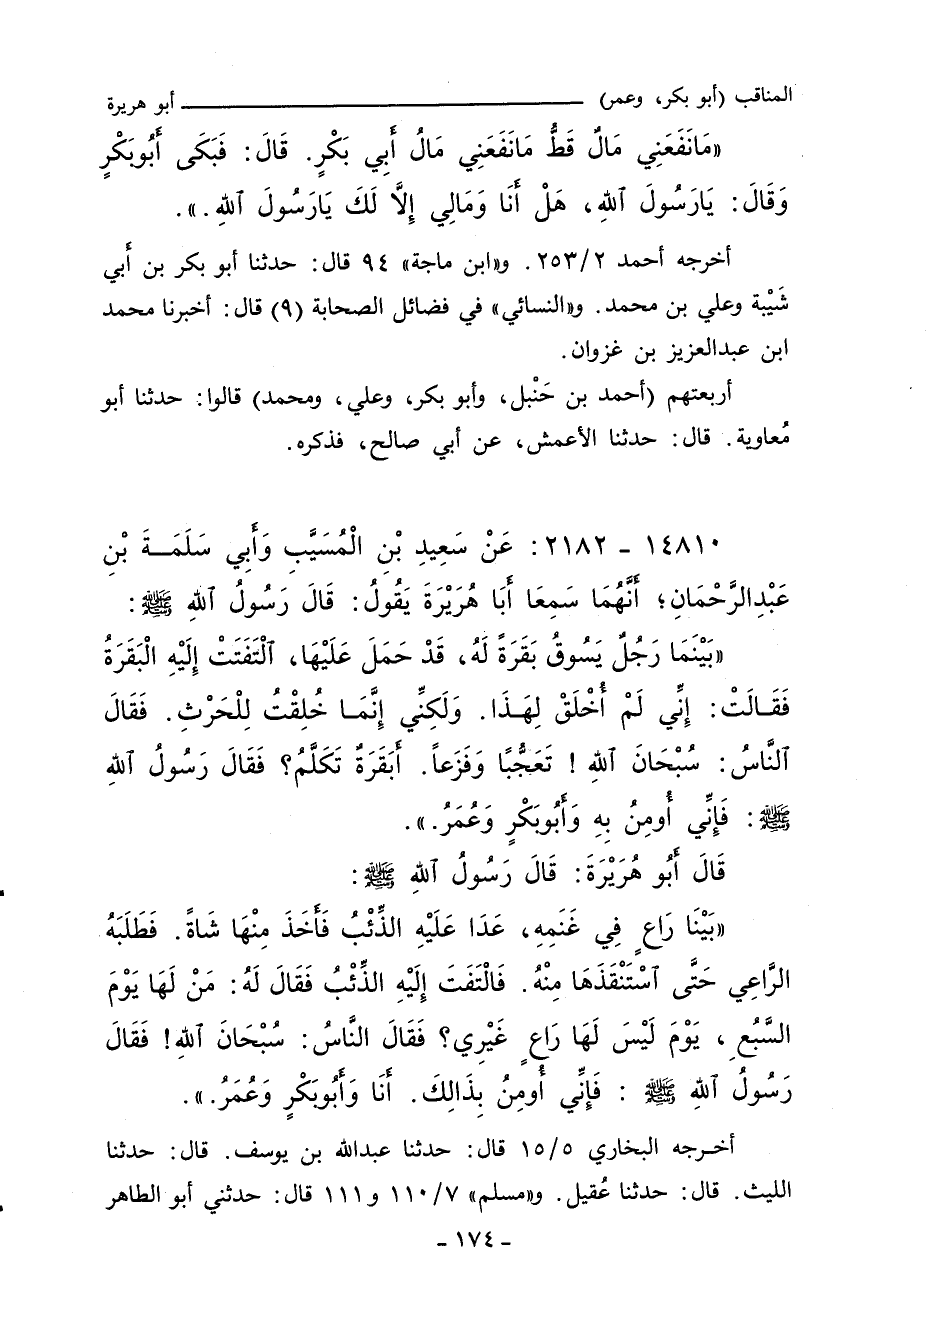 المناقب (أبو بكر، وعمر) ــــــــــــــــــــ أبو هريرة
«مَانَفَعَنِي مَالٌ قَطُّ مَانَفَعَنِي مَالُ أَبِي بَكْرٍ. قَالَ: فَبَكَى أَبُوبَكْرٍ
وَقَالَ: يَارَسُولَ ٱللهِ، هَلْ أَنَا وَمَالِي إِلَّا لَكَ يَارَسُولَ ٱللهِ.».
أخرجه أحمد ٢/٢٥٣. و«ابن ماجة» ٩٤ قال: حدثنا أبو بكر بن أَبي
شَيْبة وعلي بن محمد. و«النسائي» في فضائل الصحابة (٩) قال: أخبرنا محمد
ابن عبدالعزيز بن غزوان.
أربعتهم (أحمد بن حَنْبل، وأبو بكر، وعلي، ومحمد) قالوا: حدثنا أبو
مُعاوية. قال: حدثنا الأعمش، عن أبي صالح، فذكره.
١٤٨١٠ - ٢١٨٢: عَنْ سَعِيدِ بْنِ الْمُسَيَّبِ وَأَبِي سَلَمَـةَ بْنِ
عَبْدِالرَّحْمَانِ؛ أَنَّهُمَا سَمِعَا أَبَا هُرَيْرَةَ يَقُولُ: قَالَ رَسُولُ ٱللهِ ﷺ:
«بَيْنَمَا رَجُلٌ يَسُوقُ بَقَرَةً لَهُ، قَدْ حَمَلَ عَلَيْهَا، ٱلْتَفَتَتْ إِلَيْهِ الْبَقَرَةُ
فَقَـالَتْ: إِنِّي لَمْ أُخْلَقْ لِهَذَا. وَلَكِنِّي إِنَّمَـا خُلِقْتُ لِلْحَرْثِ. فَقَالَ
ٱلنَّاسُ: سُبْحَانَ ٱللهِ ! تَعَجُّبًا وَفَزَعاً. أَبَقَرَةٌ تَكَلَّمُ؟ فَقَالَ رَسُولُ ٱللهِ
ﷺ: فَإِنِّي أُومِنُ بِهِ وَأَبُوبَكْرٍ وَعُمَرُ.».
قَالَ أَبُو هُرَيْرَةَ: قَالَ رَسُولُ ٱللهِ ﷺ:
«بَيْنَا رَاعٍ فِي غَنَمِهِ، عَدَا عَلَيْهِ الذِّئْبُ فَأَخَذَ مِنْهَا شَاةً. فَطَلَبَهُ
الرَّاعِي حَتَّى ٱسْتَنْقَذَهَا مِنْهُ. فَالْتَفَتَ إِلَيْهِ الذِّئْبُ فَقَالَ لَهُ: مَنْ لَهَا يَوْمَ
السَّبُعِ، يَوْمَ لَيْسَ لَهَا رَاعٍ غَيْرِي؟ فَقَالَ النَّاسُ: سُبْحَانَ ٱللهِ! فَقَالَ
رَسُولُ ٱللهِ ﷺ : فَإِنِّي أُومِنُ بِذَالِكَ. أَنَا وَأَبُوبَكْرٍ وَعُمَرُ.».
أخـرجه البخاري ٥/١٥ قال: حدثنا عبدالله بن يوسف. قال: حدثنا
الليث. قال: حدثنا عُقيل. و«مسلم» ٧/١١٠ و١١١ قال: حدثني أبو الطاهر
- ١٧٤ -